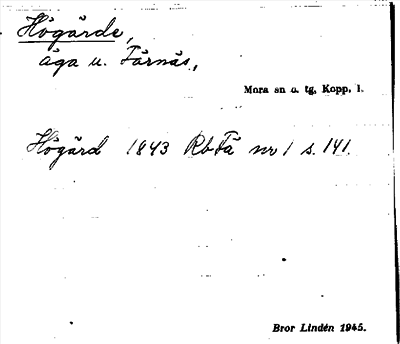 Högärde,
äga u. Färnäs,
Mora sn o. tg, Kopp. l.
Högärd 1843 RbFä nr 1 s. 141.
Bror Lindén 1945.